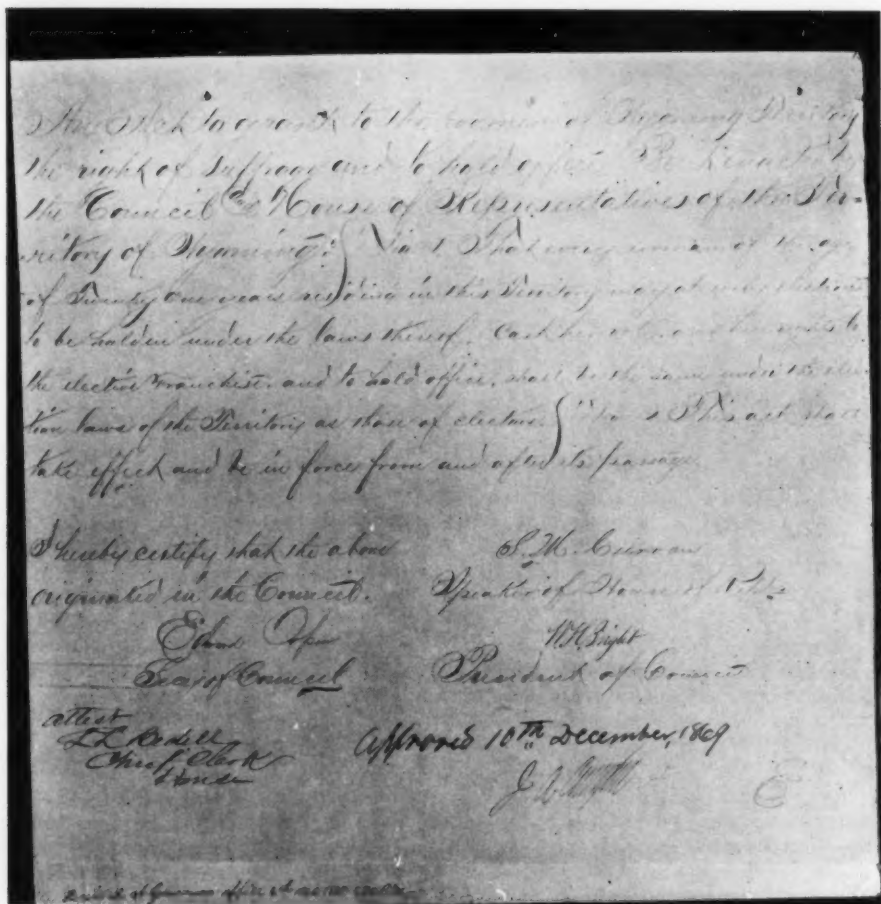 An Act to grant to the women of Wyoming Territory
the right of Suffrage and to hold office Be it enacted by
the Council and House of Representatives of the Ter-
ritory of Wyoming: Sec 1 That every woman of the age
of Twenty one years residing in this Territory may at every election
to be holden under the laws thereof. Cast her vote. and her rights to
the elective franchise and to hold office. shall be the same under the elec
tion laws of the Territory as those of electors. This act shall
take effect and be in force from and after its passage.
I hereby certify that the above
originated in the Council.
Edward
Secy of Council
S. M. Curran
Speaker of House of
W H Bright
President of Council
attest
L L Bedell
Chief Clerk
House
Approved 10th December, 1869
J A
office